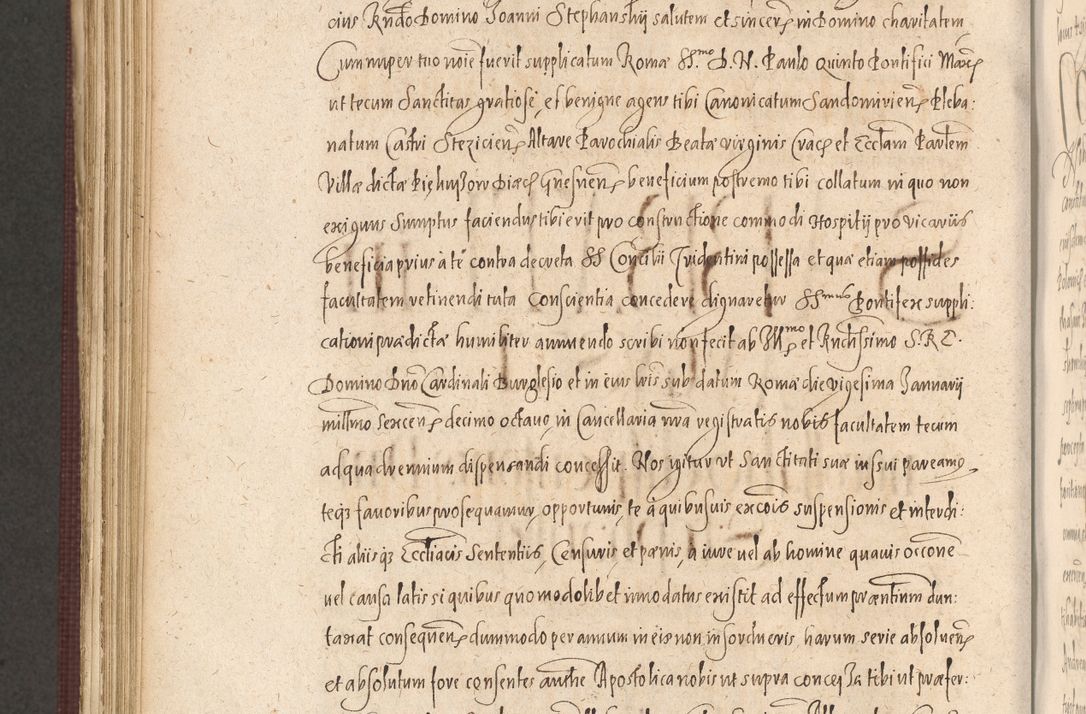 cius Rndo Domino Joanni Stephanskij salutem et sincerę in Domino charitatem
Cum nuper tuo noie fuerit supplicatum Romæ SS.mo D. N. Paulo Quinto Pontifici Max
ut tecum Sanctitas gratiose, et benigne agens tibi Canonicatum Sandomirien Pleba:
natum Castri Stezicien Altare Parochialis Beatæ virginis Crac et Eccłam Parłem
Villæ dictæ Diæc Gnesnen beneficium postremo tibi collatum in quo non
exiguus Sumptus faciendus tibi erit pro constructione commodi Hospitij pro vicariis
beneficia prius à te contra decreta SS Concilii Tridentini possessa et quæ etiam possides
facultatem retinendi tuta Conscientia concedere dignaretur SSmus Pontifex suppli:
cationi prædictæ humiliter annuendo scribi non fecit ab Illmo et Rndissimo S. R. E.
Domino Dno Cardinali Burghesio et in eius lris sub datum Romæ die vigesima Januarij
millmo sexcen decimo octauo in Cancellaria nra registratis nobis facultatem tecum
ad quadrennium dispensandi concessit. Nos igitur ut Sanctitati suæ iussui pareamus
teq3 fauoribus prosequamur, opportunis, te à quibusuis excois suspensionis et interdi:
cti aliisq3 Eccliacis Sententiis, Censuris, et pænis, a iure uel ab homine quauis occone
uel causa latis si quibus quomodolibet innodatus existit ad effectum præntium dun:
taxat consequen dummodo per annum in eis non insordueris, harum serie absoluen
et absolutum fore censentes authe Apostolica nobis ut supra concessa tibi ut præfer: